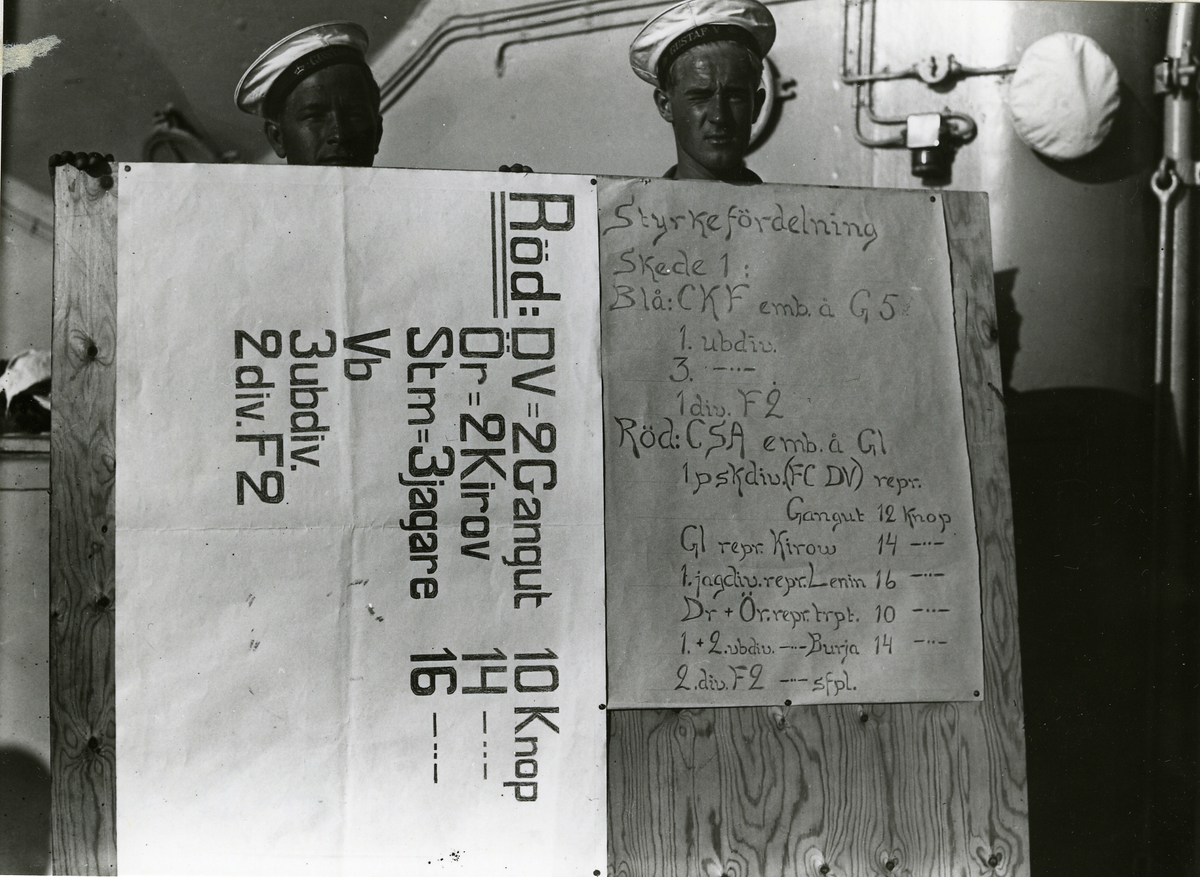 GUSTAF V
Röd: ÖV = 2 Gangut 10 Knop
Ör = 2 Kirov 14 -"-
Stm = 3 jagare 16 -"-
Vb
3 ubdiv.
2 div. F 2
Styrkefördelning
Skede 1:
Blå: CKF emb. å G 5
1. ubdiv.
3. -"-
1 div. F 2
Röd: CSA emb. å Gl
1 pskdiv. (FC DV) repr.
Gangut 12 Knop
Gl repr. Kirow 14 -"-
1. jagdiv. repr. Lenin 16 -"-
Dr + Ör. repr. trpt. 10 -"-
1. + 2. ubdiv. -"- Burja 14 -"-
2. div. F2 -"- sfpl.